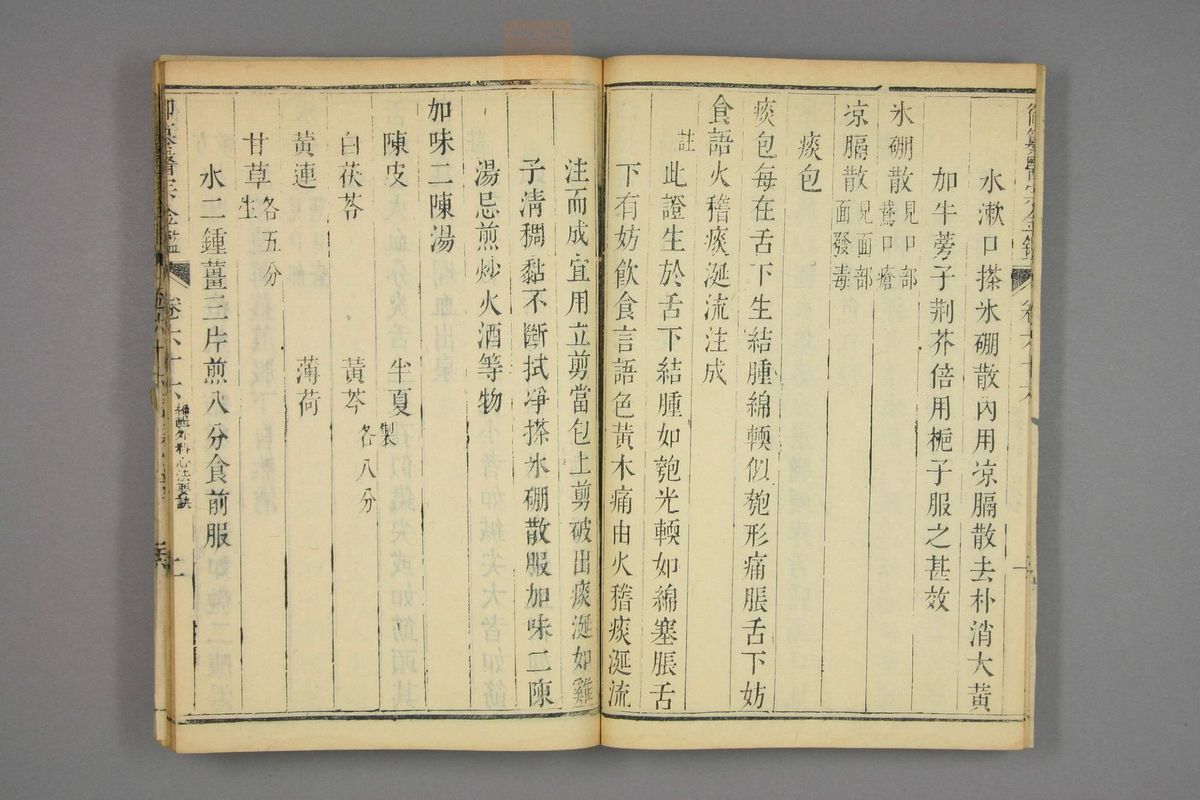 水漱口搽氷硼散內用凉膈散去朴消大黃
加牛蒡子荆芥倍用梔子服之甚效
氷硼散見口部鵞口瘡
凉膈散見面部面發毒
痰包
痰包每在舌下生結腫綿輭似匏形痛脹舌下妨
食語火稽痰涎流注成
註此證生於舌下結腫如匏光輭如綿塞脹舌
下有妨飲食言語色黃木痛由火稽痰涎流
注而成宜用立剪當包上剪破出痰涎如雞
子清稠黏不斷拭凈搽氷硼散服加味二陳
湯忌煎炒火酒等物
加味二陳湯
陳皮 半夏製
白茯苓 黃芩各八分
黃連 薄荷
甘草生各五分
水二鍾薑三片煎八分食前服
御纂醫宗金鑑 卷六十六 編輯外科心法要訣